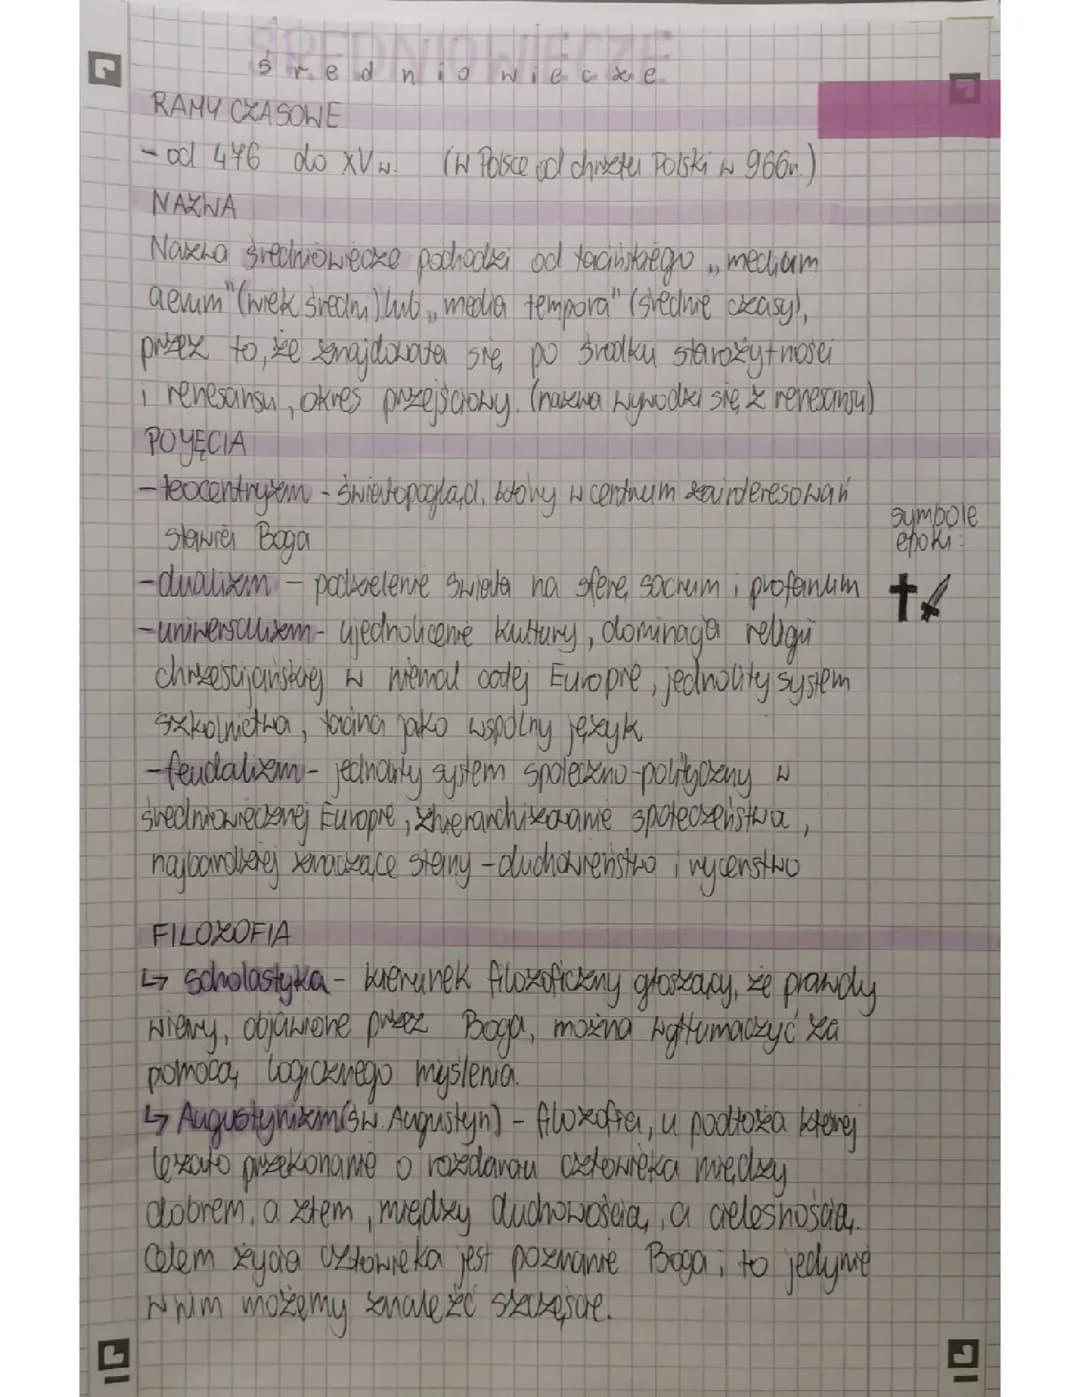 ŚREDNIOWIECZE
średniowiecze
RAMY CZASOWE
- od 476 do XV w. (w Polsce od chrztu Polski w 966r.)
NAZWA
Nazwa średniowiecze pochodzi od łacińskiego „medium
aevum" (wiek średni) lub „media tempora" (średnie czasy),
przez to, że znajdowała się po środku starożytności
i renesansu, okres przejściowy. (nazwa wywodzi się z renesansu)
POJĘCIA
- teocentryzm - światopogląd, który w centrum zainteresowań
stawia Boga
symbole
epoki:
- dualizm - podzielenie świata na sferę sacrum i profanum
- uniwersalizm - ujednolicenie kultury, dominacja religii
chrześcijańskiej w niemal całej Europie, jednolity system
szkolnictwa, łacina jako wspólny język
- feudalizm - jednolity system społeczno-polityczny w
średniowiecznej Europie, zhierarchizowanie społeczeństwa,
najbardziej znaczące stany - duchowieństwo i rycerstwo
FILOZOFIA
↳ scholastyka - kierunek filozoficzny głoszący, że prawdy
wiary, objawione przez Boga, można wytłumaczyć za
pomocą logicznego myślenia.
↳ Augustynizm (św. Augustyn) - filozofia, u podłoża której
leżało przekonanie o rozdarciu człowieka między
dobrem, a złem, między duchowością, a cielesnością.
Celem życia człowieka jest poznanie Boga i to jedynie
w nim możemy znaleźć szczęście.